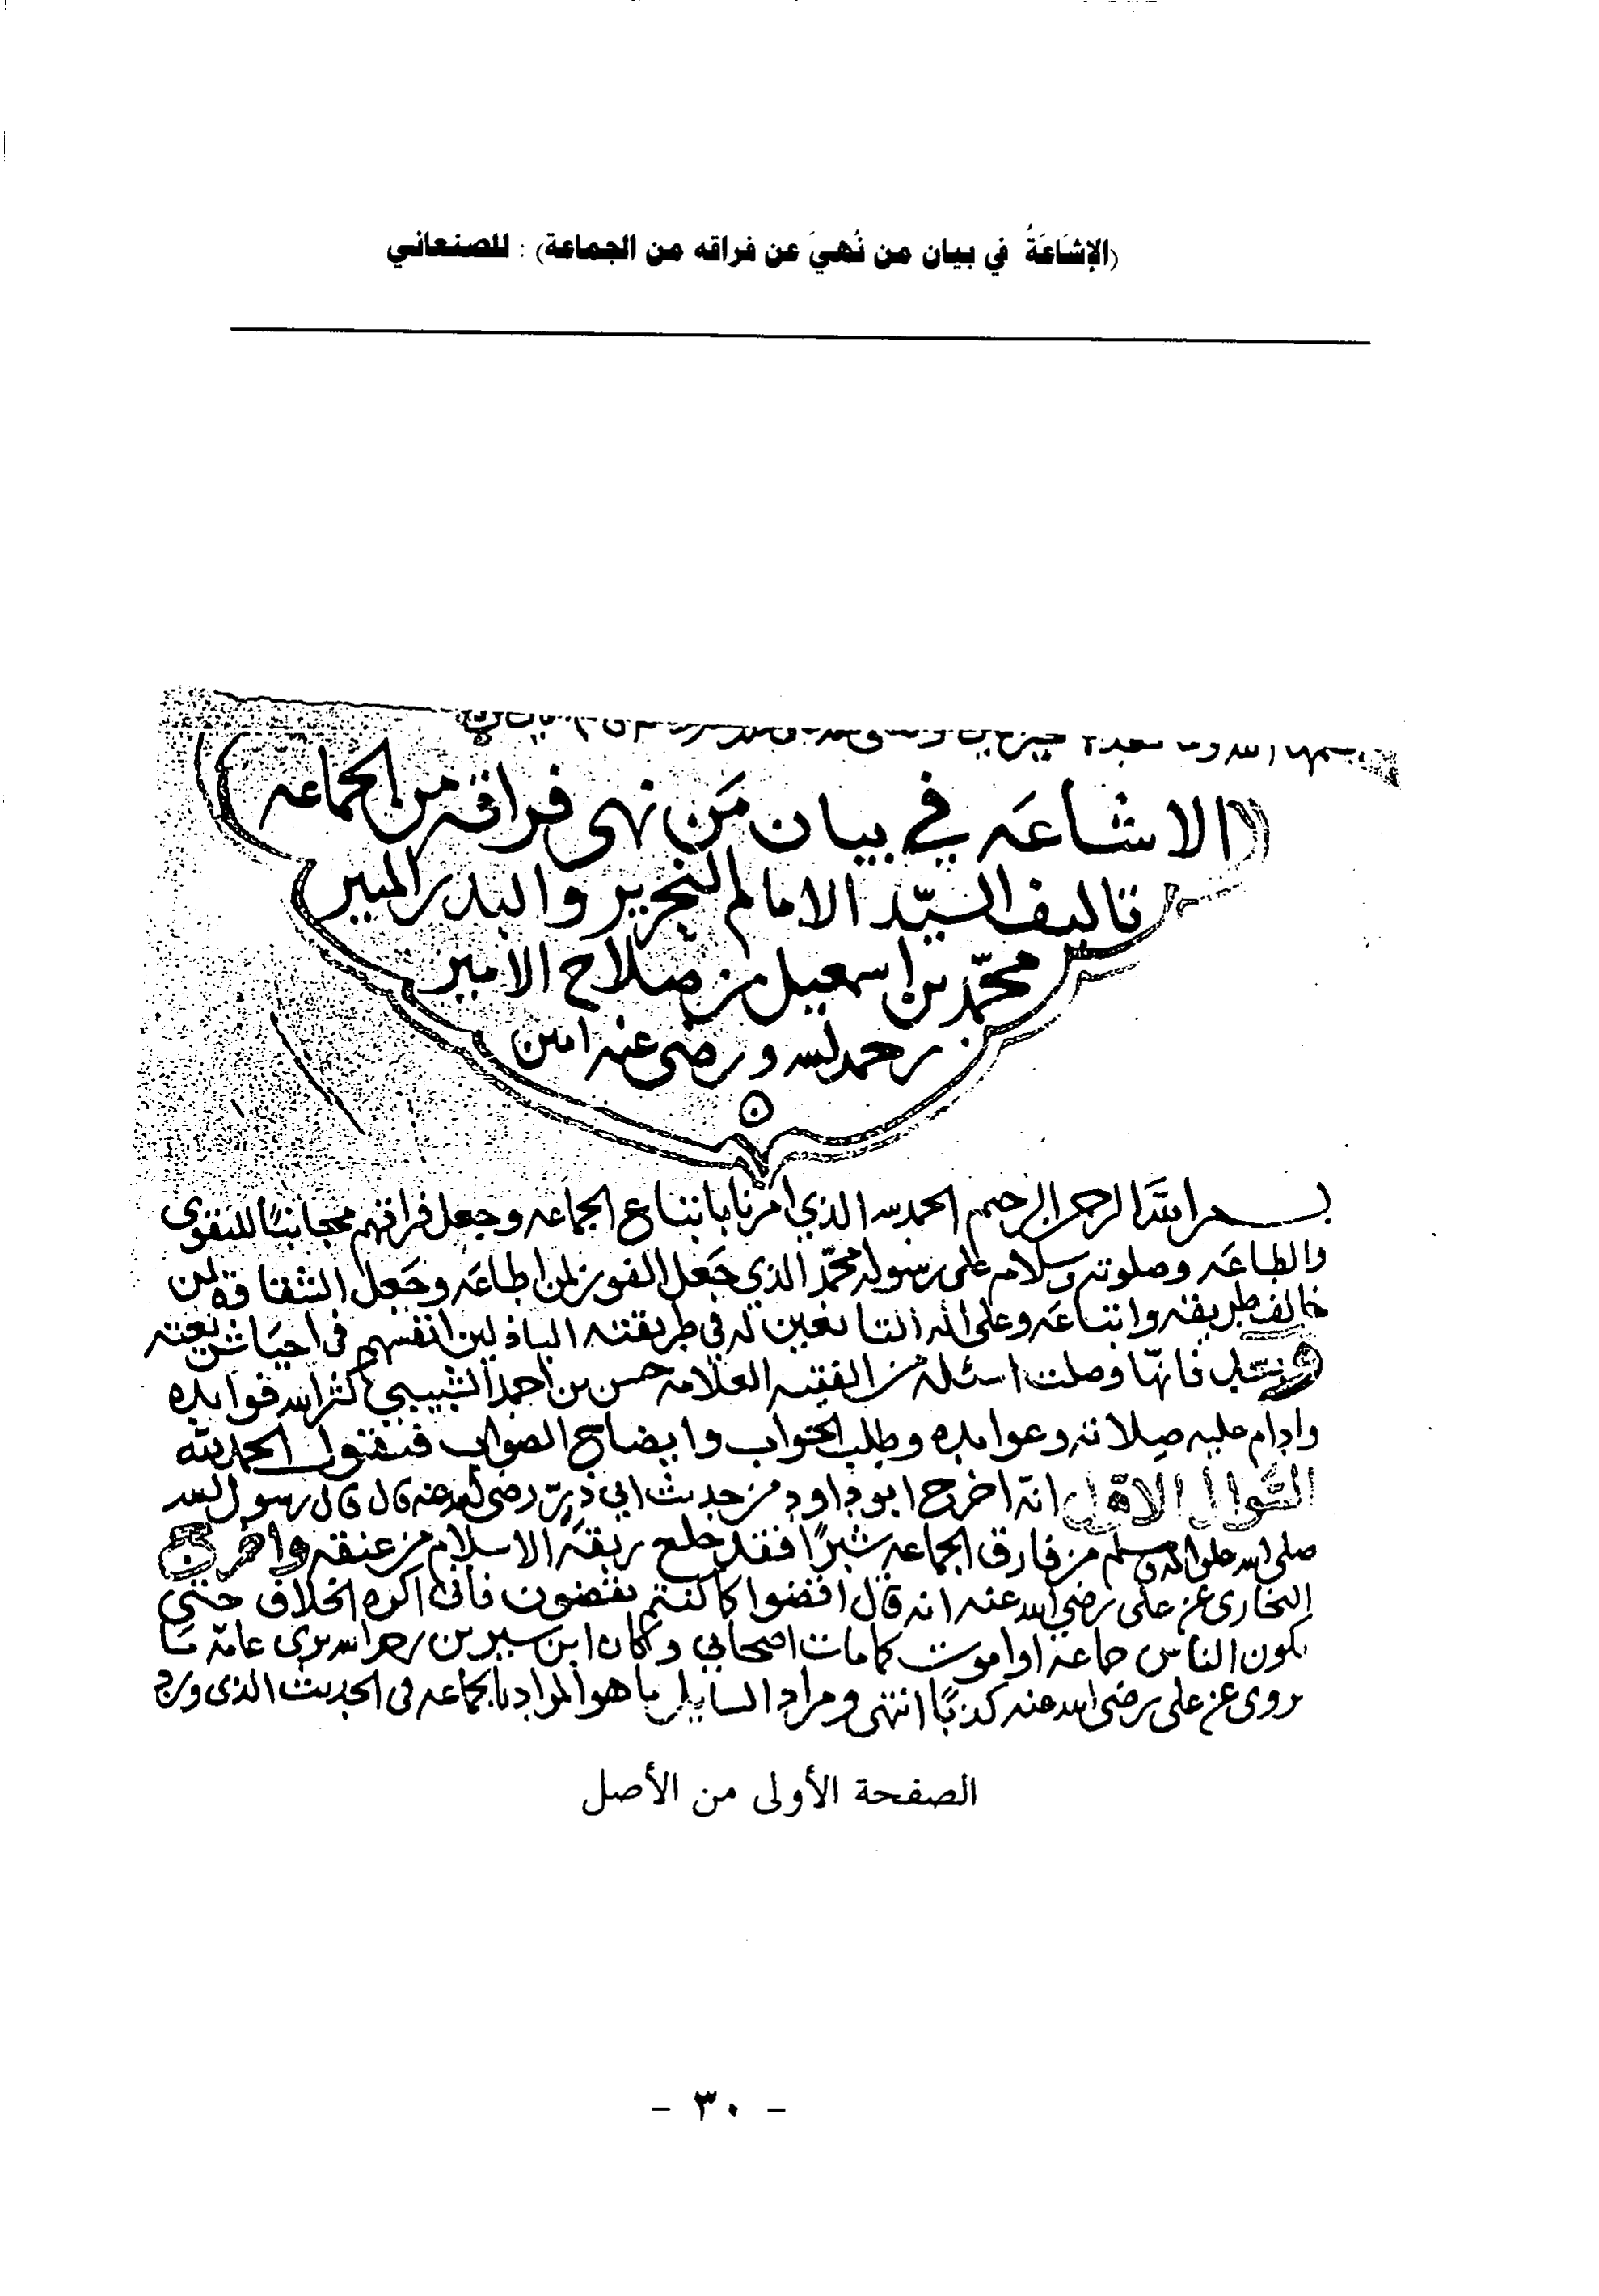 (الإشَاعَةُ في بيان من نُهيَ عن فراقه من الجماعة) : للصنعاني
الاشاعه في بيان مَن نهى فراقه من الجماعه
تاليف السيّد الامام النحرير والبدر المنير
محمّد بن اسمعيل بن صلاح الامير
رحمه الله ورضى عنه امين
بسم الله الرحمن الرحيم الحمد لله الذي امرنا باتباع الجماعه وجعل فراقهم مجانبًا للتقوى
والطاعَه وصلوته وسلامه على رسوله محمّد الذي جَعل الفوز لمن اطاعَه وجَعل الشقاوة لمن
خالف طريقته واتباعَه وعلى اله التابعين له في طريقته الباذلين انفسهم فى احيَا شريعته
وبعد فانها وصلت اسئله من الفقيه العلامه حسن بن احمد الشبيبي كثر الله فوايده
وادام عليه صِلاته وعوايده وطلب الجواب وايضاح الصواب فنقول الحمد لله
السّوال الاوّل انه اخرج ابو داود من حديث ابي ذرّ رضى الله عنه قال قال رسول الله
صلى الله عليه واله وسلم من فارق الجماعه شبرًا فقد خلع ربقة الاسلام من عنقه واخرج
البخارى عن على رضي الله عنه انه قال اقضوا كما كنتم تقضون فانى اكره الخلاف حتى
يكون الناس جماعه او اموت كما مات اصحابي وكان ابن سيرين يرى عامّة مَا
يروى عن على رضى الله عنه كذبًا انتهى ومراد السايل ما هو المراد بالجماعه فى الحديث الذى ورد
الصفحة الأولى من الأصل
- ٣٠ -